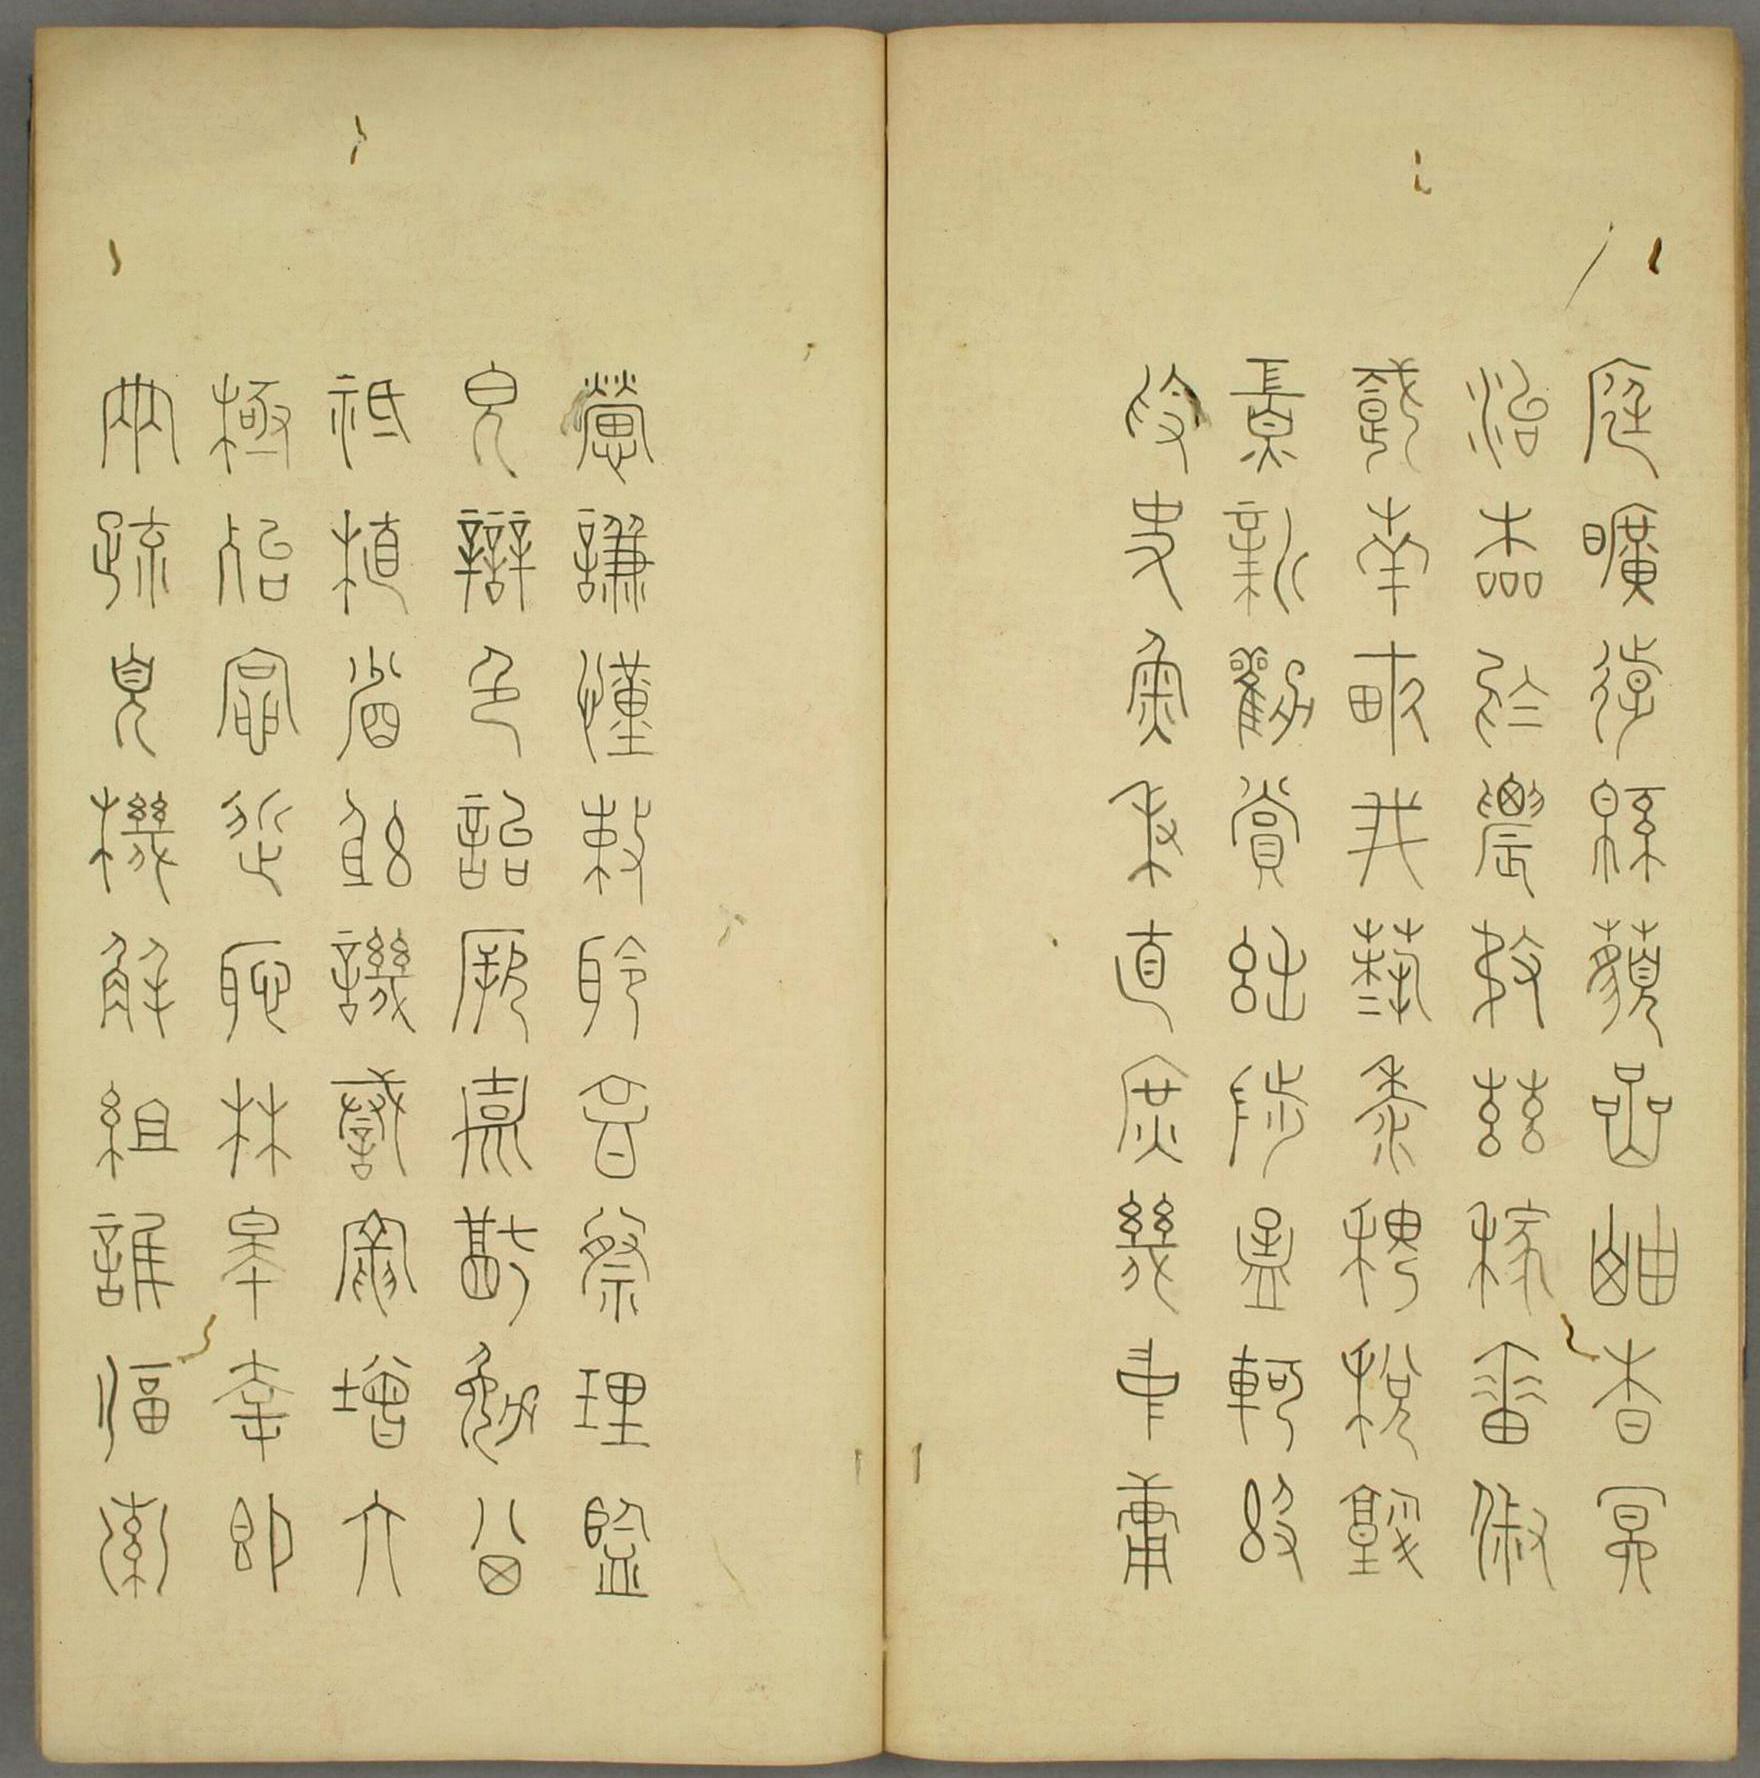 庭曠遠緜邈巖岫杳冥
治本於農務茲稼穡俶
載南畝我藝黍稷稅熟
貢新勸賞黜陟孟軻敦
素史魚秉直庶幾中庸
勞謙謹敕聆音察理鑑
皃辯色貽厥嘉猷勉其
祗植省躬譏誡寵增抗
極殆辱近恥林皋幸即
兩疏見機解組誰逼索